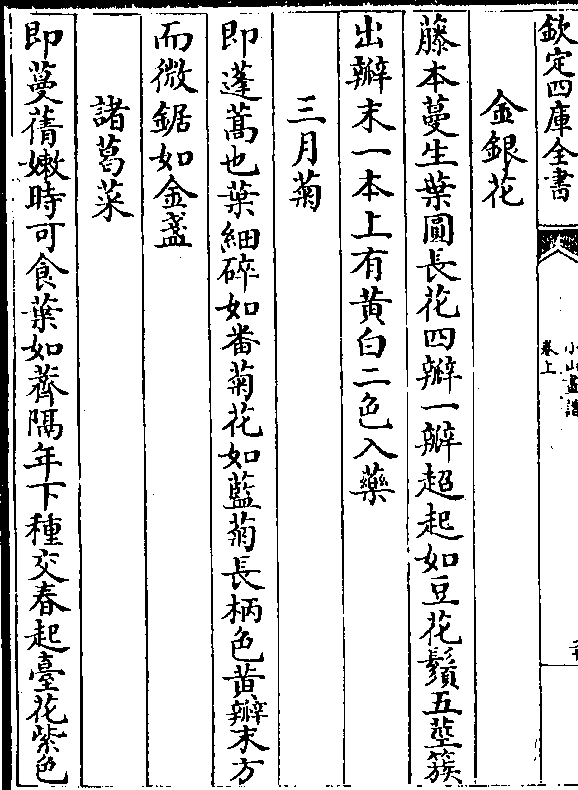 欽定四庫全書
小山畫譜
卷上
金銀花
藤本蔓生葉圓長花四瓣一瓣超起如豆花鬚五莖簇
出瓣末一本上有黃白二色入藥
三月菊
即蓬蒿也葉細碎如番菊花如藍菊長柄色黃瓣末方
而微鋸如金盞
諸葛菜
即蔓蒨嫩時可食葉如薺隔年下種交春起臺花紫色